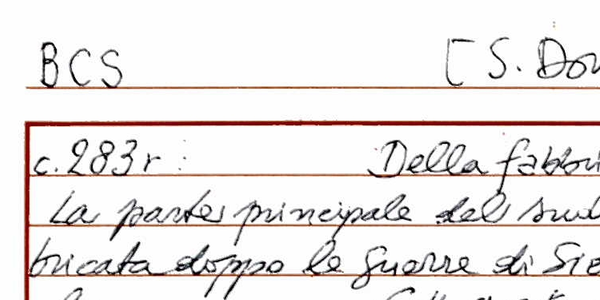 BCS [S. Dom
c. 283r : Della fabbri
La parte principale del sud
bricata doppo le guerre di Sie